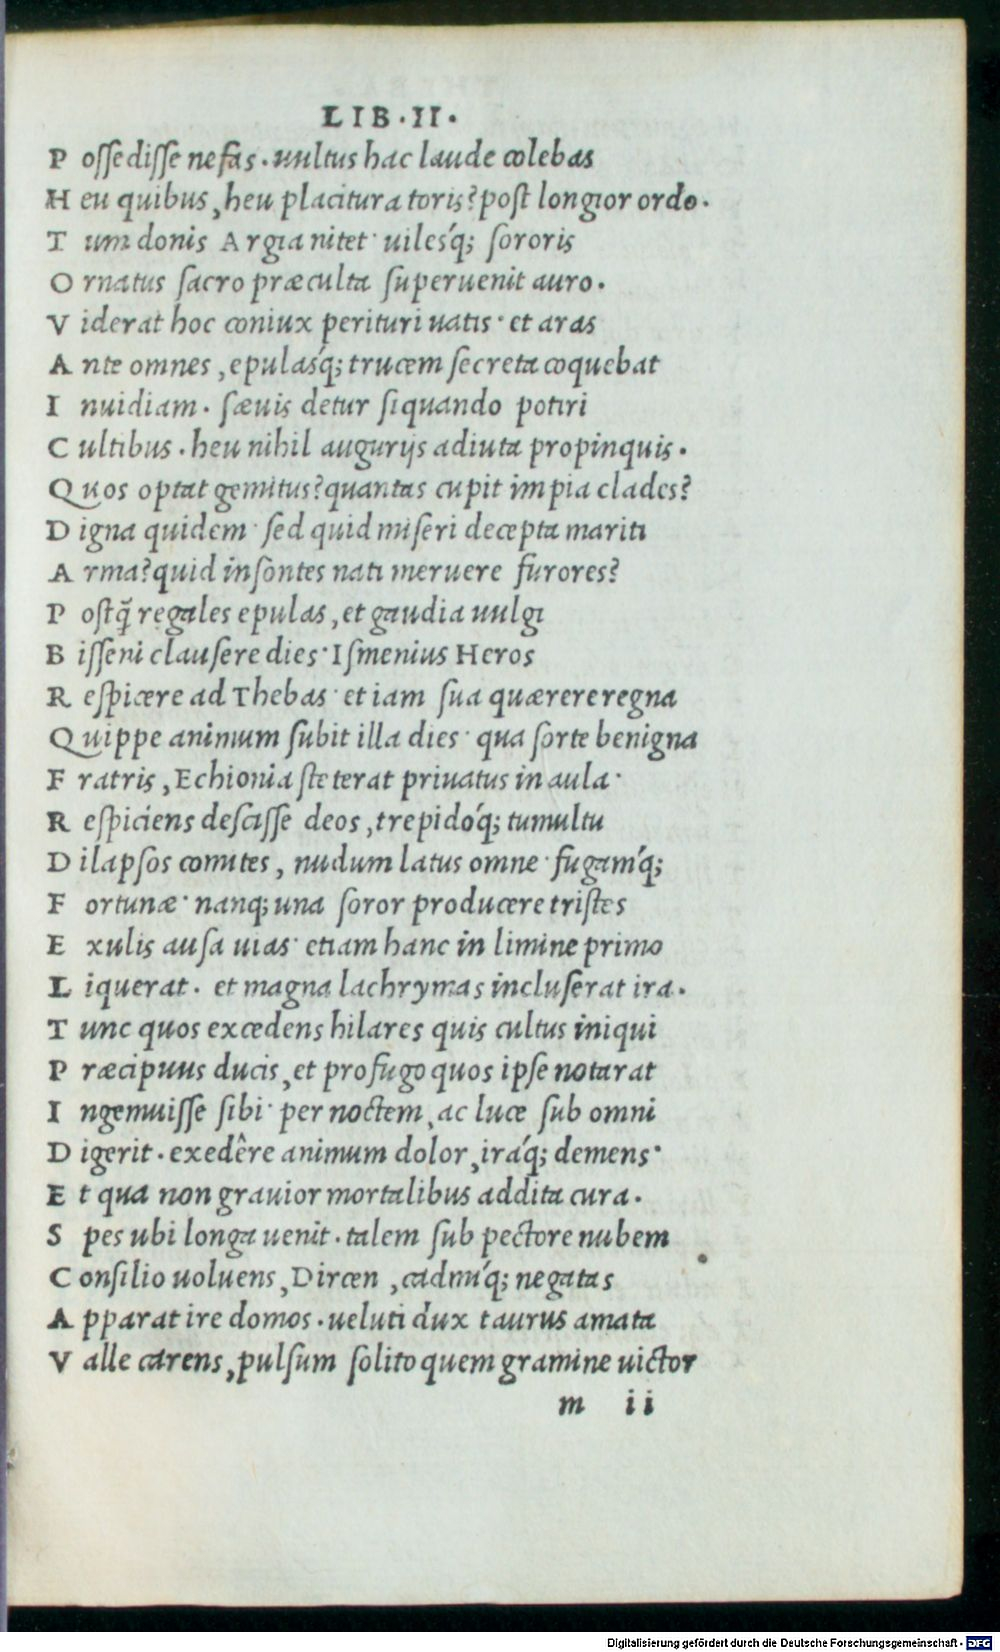 LIB·II·
P ossedisse nefas. uultus hac laude colebas
H eu quibus, heu placitura toris? post longior ordo.
T um donis Argia nitet· uilesq́; sororis
O rnatus sacro præculta superuenit auro.
V iderat hoc coniux perituri uatis· et aras
A nte omnes, epulasq́; trucem secreta coquebat
I nuidiam. sæuis detur siquando potiri
C ultibus. heu nihil augurijs adiuta propinquis.
Q uos optat gemitus? quantas cupit impia clades?
D igna quidem· sed quid miseri decepta mariti
A rma? quid insontes nati meruere furores?
P ostq̃ regales epulas, et gaudia uulgi
B isseni clausere dies· Ismenius Heros
R espicere ad Thebas· et iam sua quærere regna
Q uippe animum subit illa dies· qua sorte benigna
F ratris, Echionia steterat priuatus in aula·
R espiciens descisse deos, trepidoq́; tumultu
D ilapsos comites, nudum latus omne· fugamq́;
F ortunæ· nanq; una soror producere tristes
E xulis ausa uias· etiam hanc in limine primo
L iquerat. et magna lachrymas incluserat ira.
T unc quos excedens hilares quis cultus iniqui
P ræcipuus ducis, et profugo quos ipse notarat
I ngemuisse sibi· per noctem, ac luce sub omni
D igerit. exedêre animum dolor, iraq́; demens·
E t qua non grauior mortalibus addita cura.
S pes ubi longa uenit. talem sub pectore nubem
C onsilio uoluens, Dircen, cadmiq́; negatas
A pparat ire domos. ueluti dux taurus amata
V alle carens, pulsum solito quem gramine uictor
m ii
Digitalisierung gefördert durch die Deutsche Forschungsgemeinschaft - DFG